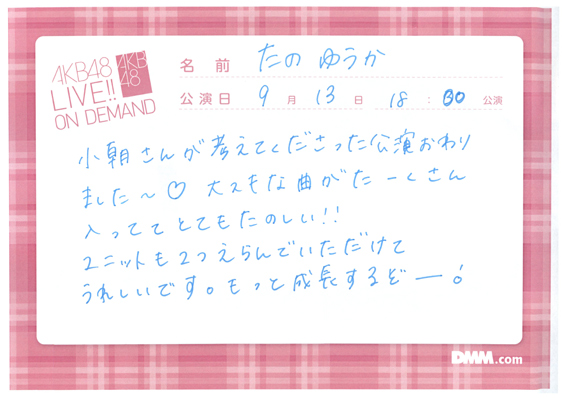 AKB48
LIVE!!
ON DEMAND
AKB
48
名前 たの ゆうか
公演日 9月13日 18:30公演
小朝さんが考えてくださった公演おわり
ました〜♡ 大スキな曲がたーくさん
入っててとてもたのしい!!
ユニットも2つえらんでいただけて
うれしいです。もっと成長するぞー!
DMM.com